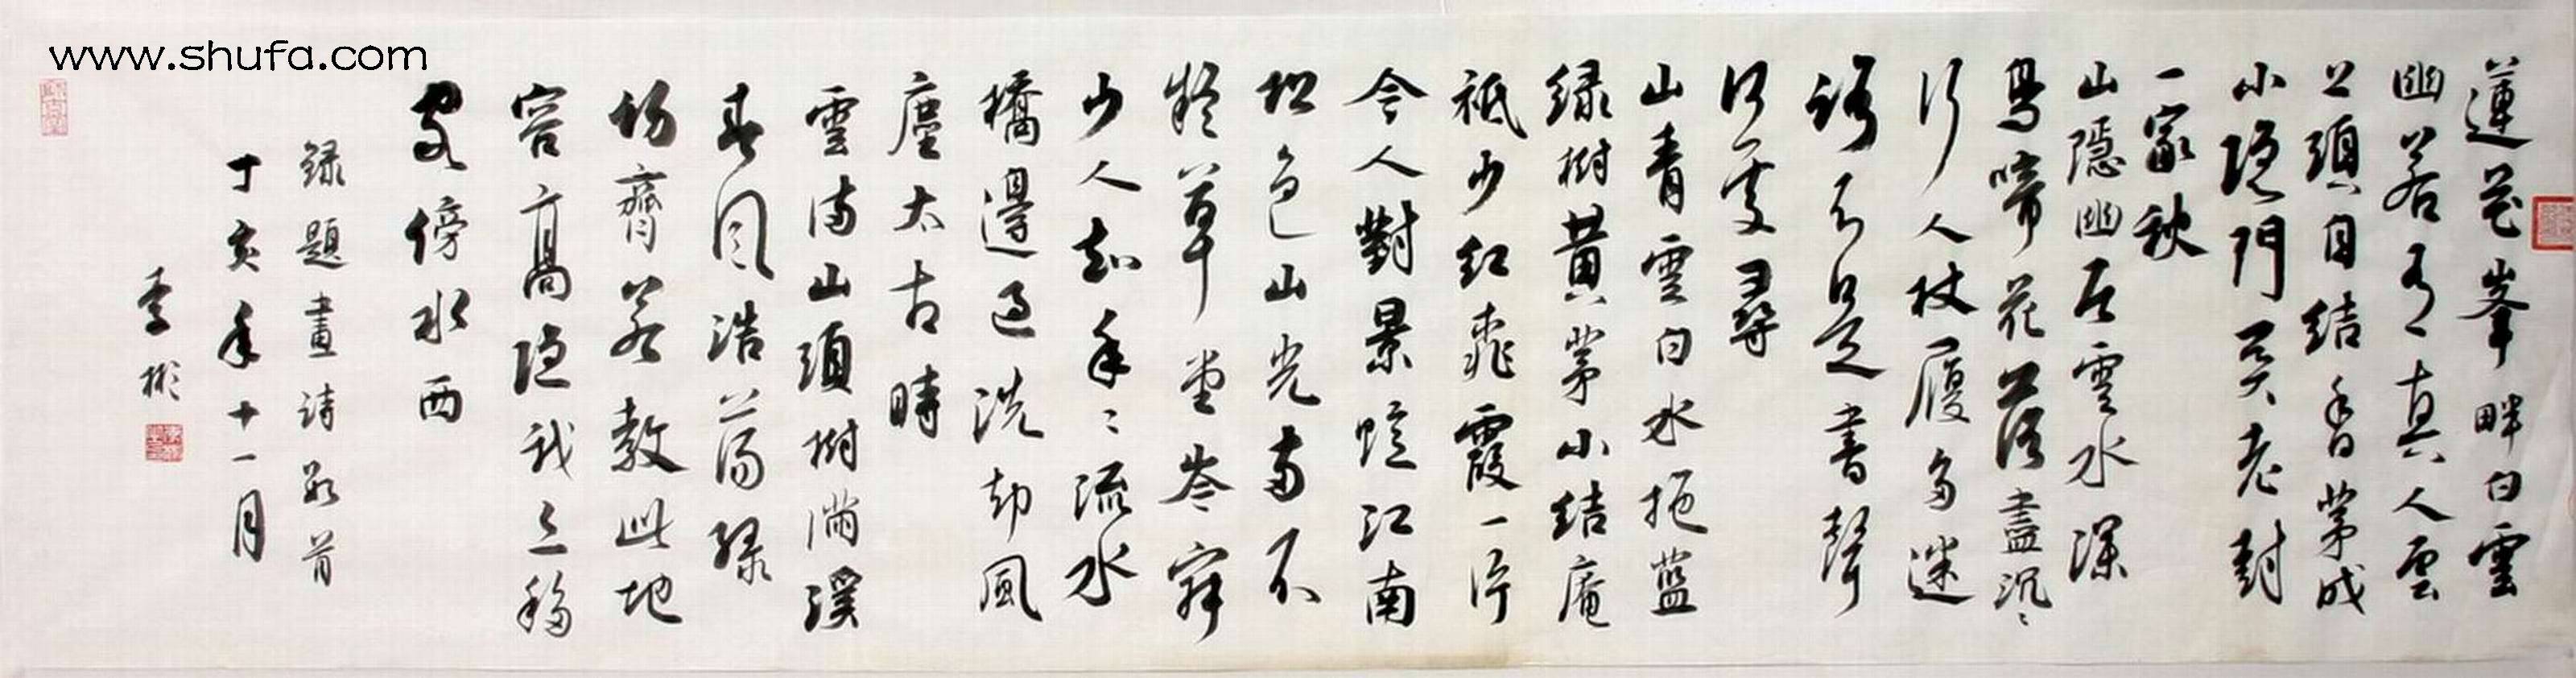 www.shufa.com
蓮花峯畔白雲
幽若有真人雲
上頭目結香茅成
小隱門 長封
一家秋
山隱幽居雲水深
鳥啼花落盡沉沉
行人杖履多迷
路不是書聲
何處尋
山青雲白水拖藍
緑樹黄茅小結庵
祗少紅飛霞一片
今人對景憶江南
松色山光両不
移草堂岑寂
少人知年年流水
橋邊過洗却風
塵太古時
雲満山頭樹満溪
春風浩蕩緑
初齊若教此地
容高隱我亦移
家傍水西
録題畫詩数首
丁亥年十一月
李彬